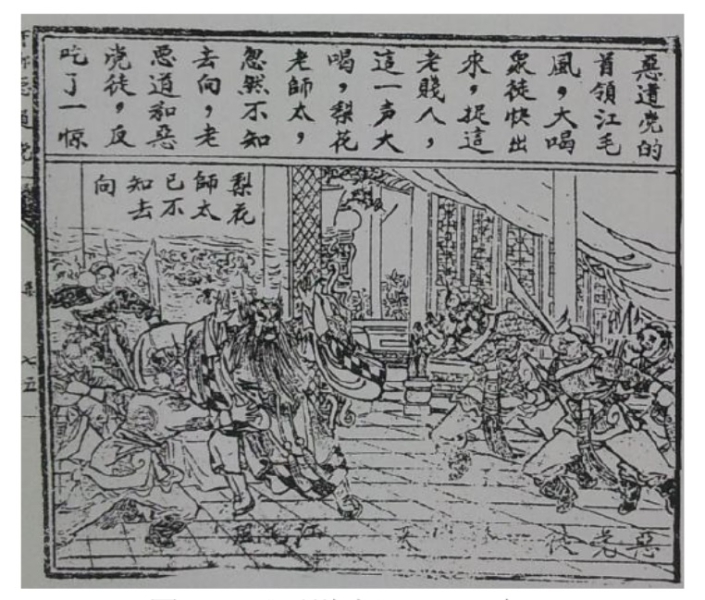 惡道党的
首領江毛
風，大喝
衆徒快出
來，捉這
老賤人，
這一声大
喝，梨花
老師太，
忽然不知
去向，老
惡道和惡
党徒，反
吃了一惊
梨花
師太
已不
知去
向
惡党徒
江毛風
七五